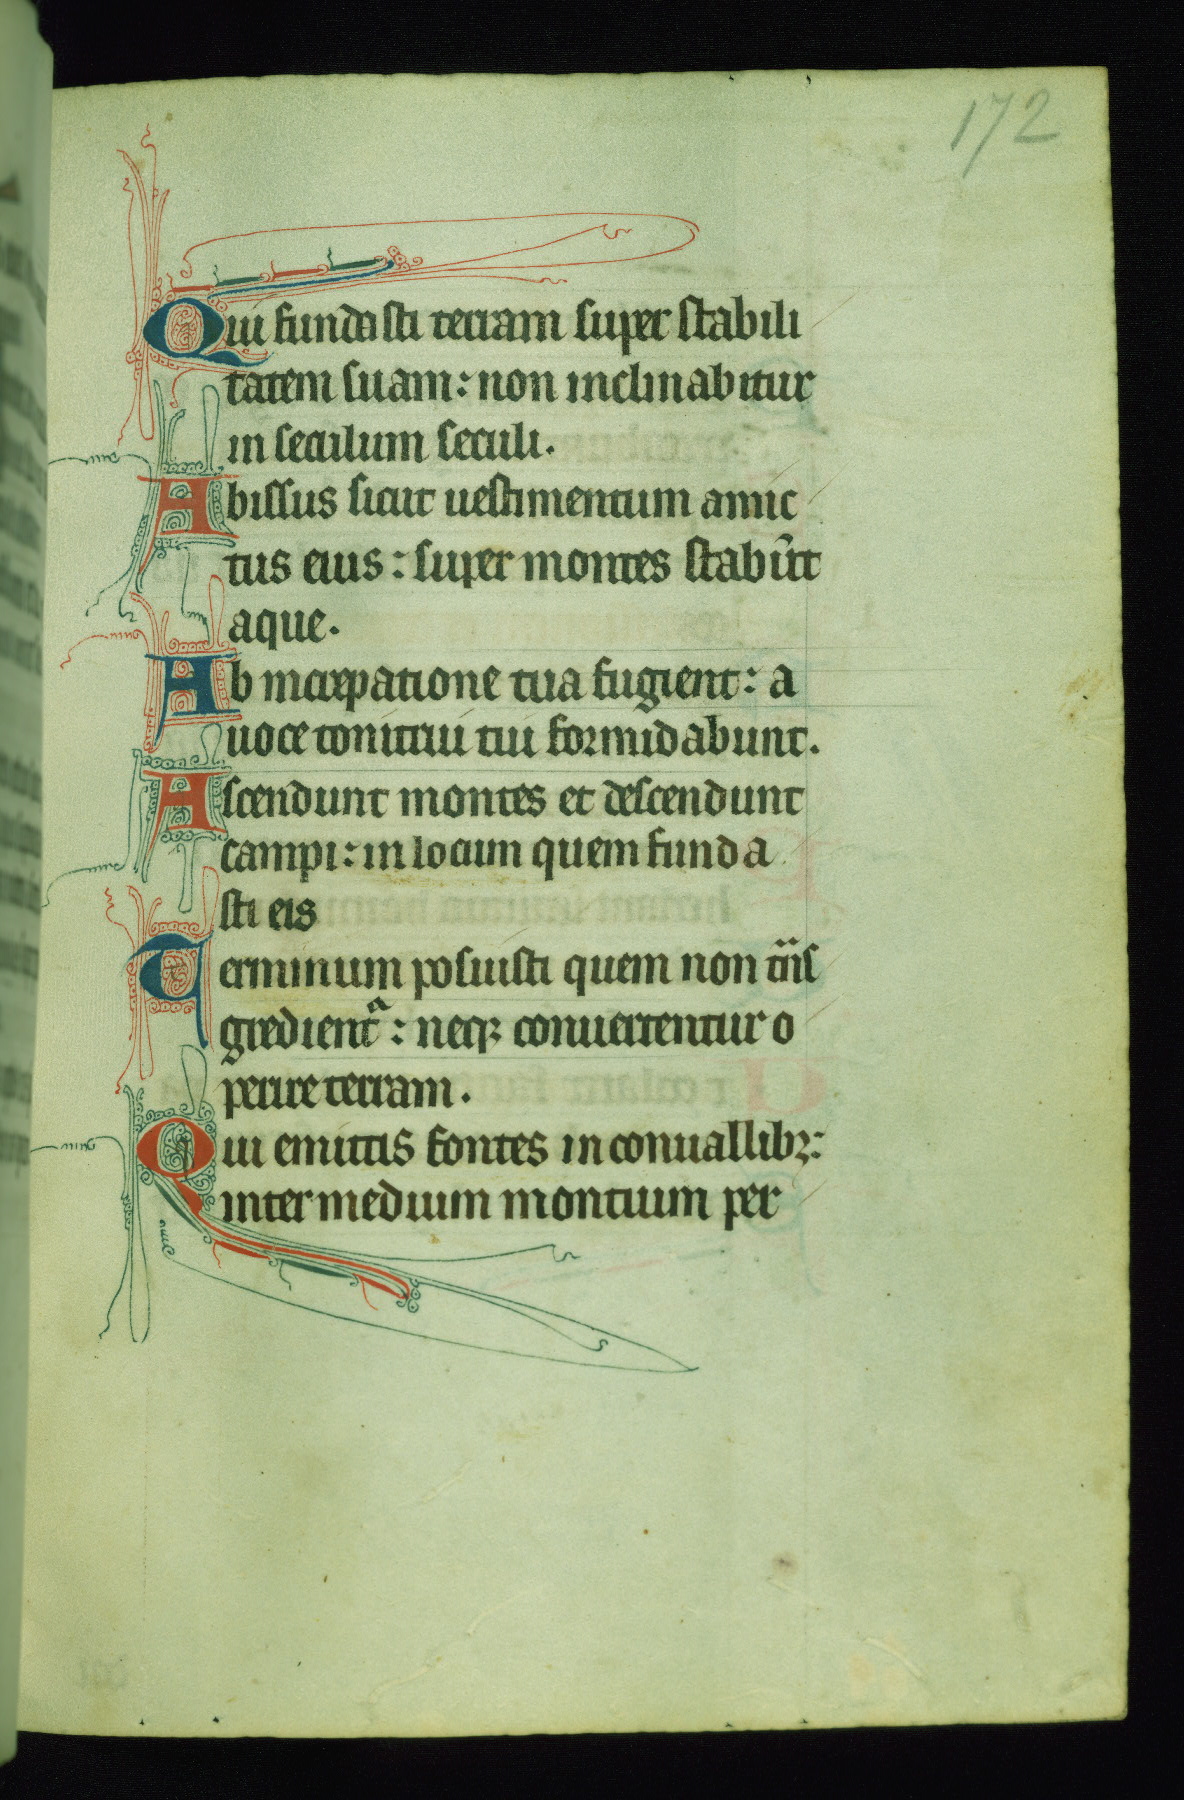 172
Qui fundasti terram super stabili
tatem suam: non inclinabitur
in seculum seculi.
Abissus sicut uestimentum amic
tus eius: super montes stabūt
aque.
Ab increpatione tua fugient: a
uoce tonitrui tui formidabunt.
Ascendunt montes et descendunt
campi: in locum quem funda
sti eis
Terminum posuisti quem non tͣns
gredientᷓ: neqꝫ conuertentur o
perire terram.
Qui emittis fontes in conuallibꝫ:
inter medium montium per